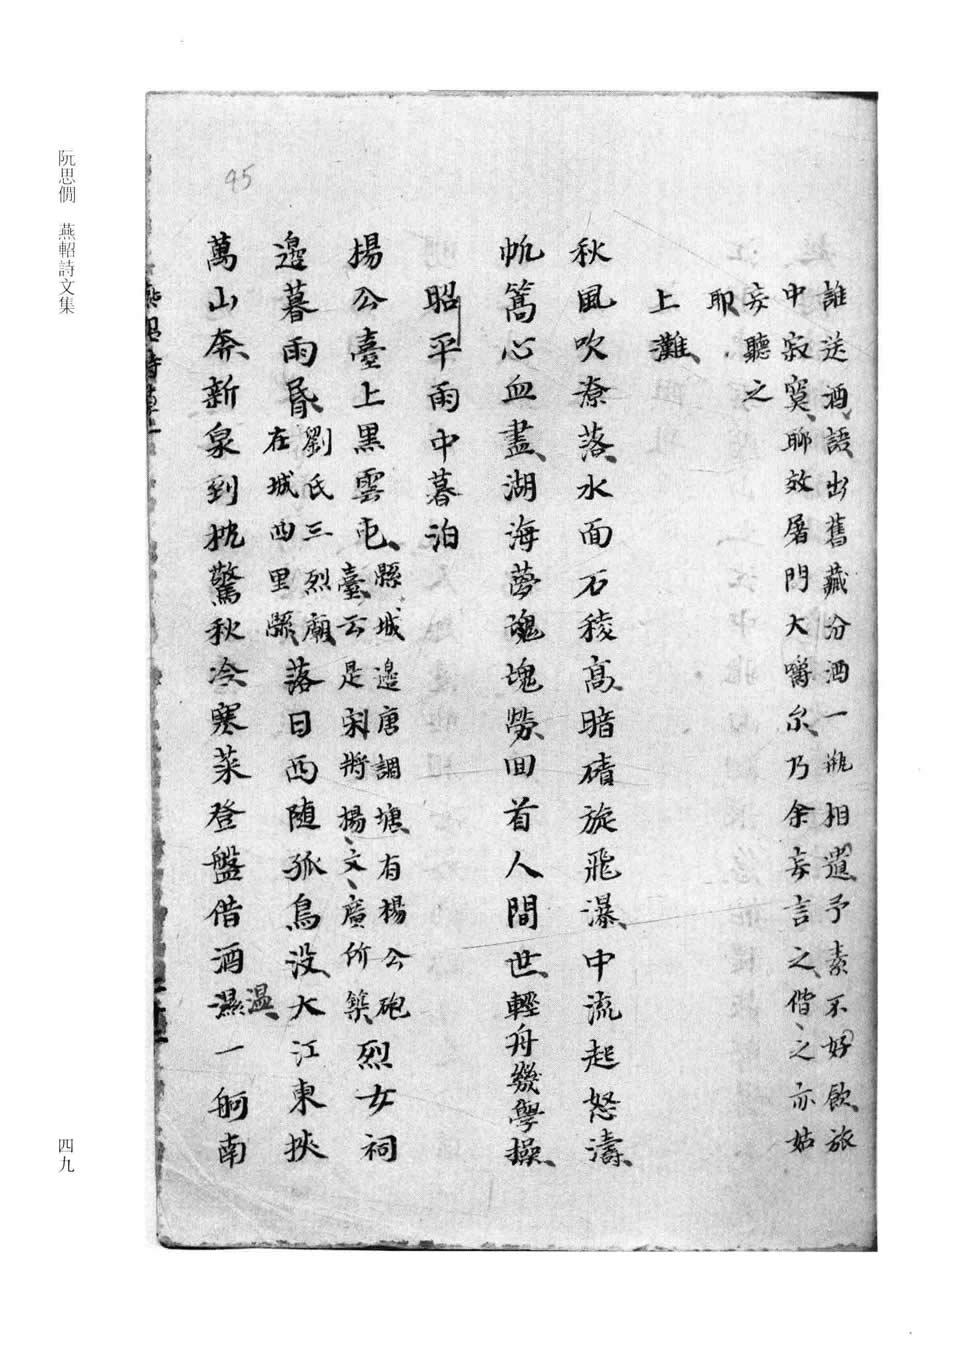 誰送酒語出舊藏分酒一瓶相遺予素不好飲旅
中寂寞聊效屠門大嚼尔乃余妄言之偕之亦姑
妄聽之
耶
上灘
秋風吹潦落水面石稜高暗磧旋飛瀑中流起怒濤
帆篙心血盡湖海夢魂勞回首人間世輕舟幾學操
昭平雨中暮泊
揚公臺上黑雲屯縣城邊唐調塘有楊公砲臺云是宋將楊文廣所築烈女祠
邊暮雨昏劉氏三烈廟在城西里縣落日西随孤鳥没大江東挾
萬山奔新泉到枕驚秋冷寒菜登盤借酒濕溫一舸南
95
燕軺詩文集
阮思僩 燕軺詩文集
四九